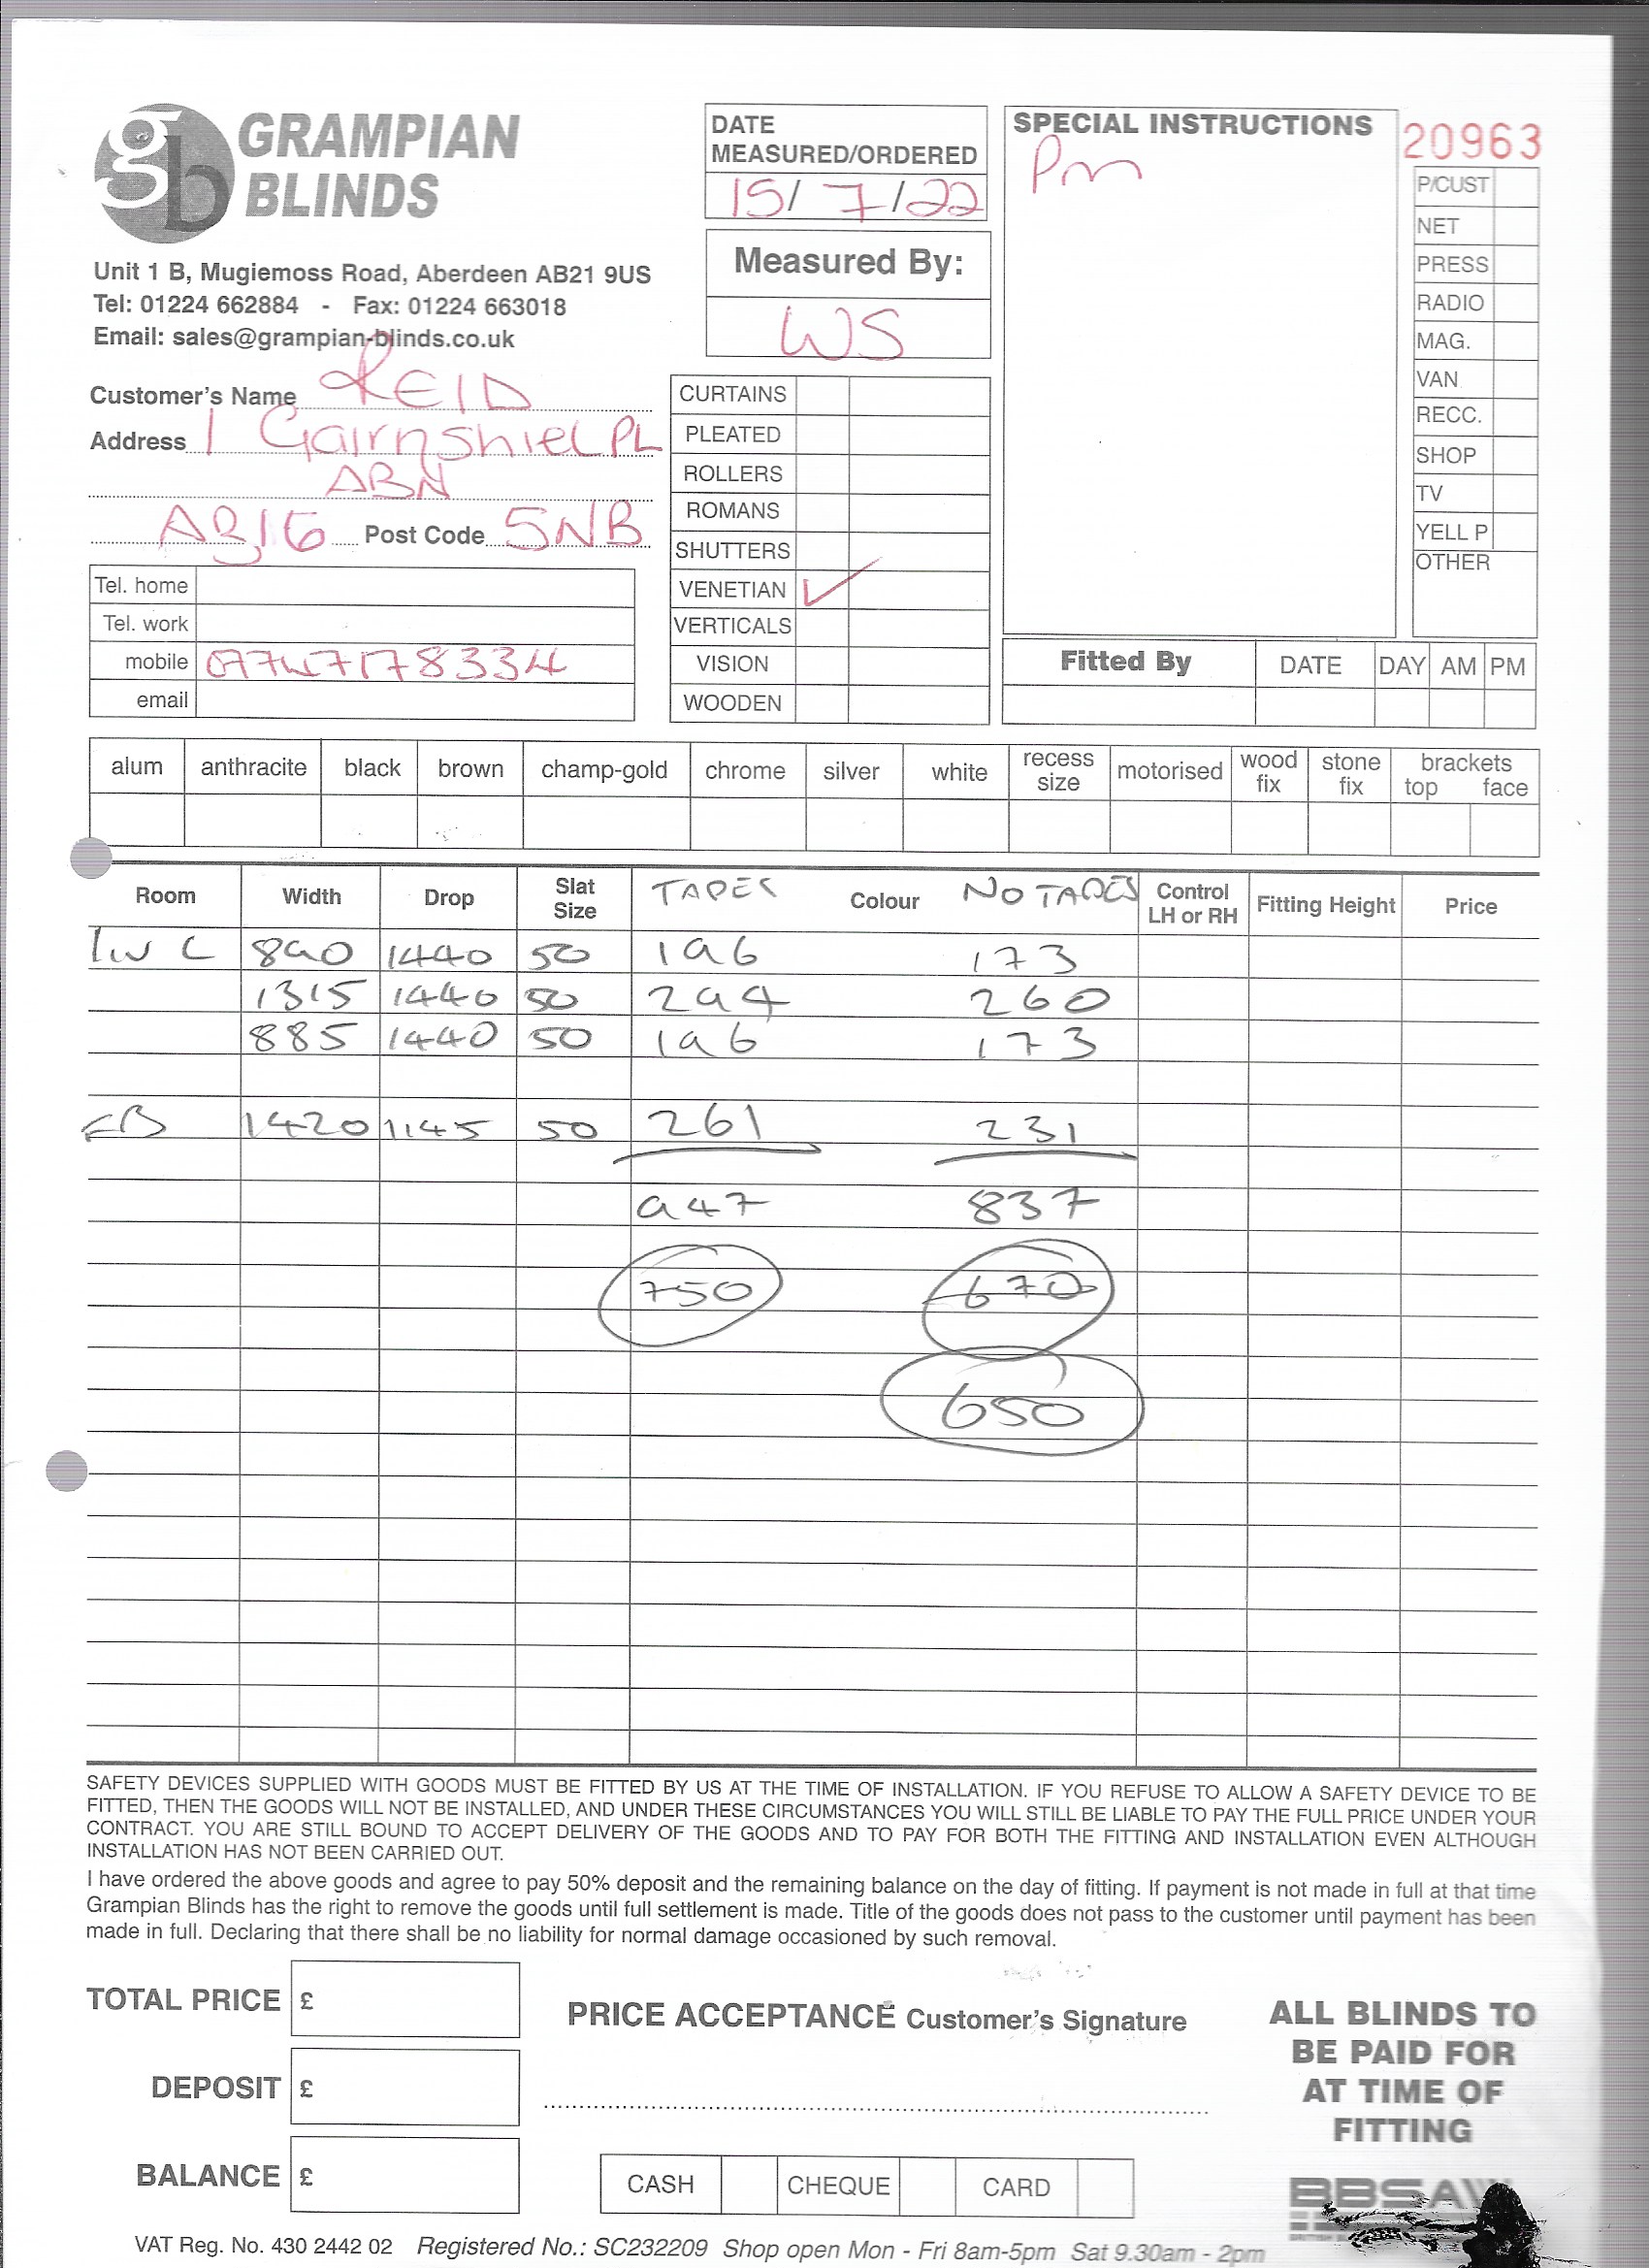 gb GRAMPIAN BLINDS
Unit 1 B, Mugiemoss Road, Aberdeen AB21 9US
Tel: 01224 662884 - Fax: 01224 663018
Email: sales@grampian-blinds.co.uk
Customer's Name REID
Address 1 Gairnshiel PL
ABN
AB16 Post Code 5NB
Tel. home
Tel. work
mobile 07747178334
email
DATE MEASURED/ORDERED
15/7/22
Measured By:
WS
CURTAINS
PLEATED
ROLLERS
ROMANS
SHUTTERS
VENETIAN ✓
VERTICALS
VISION
WOODEN
SPECIAL INSTRUCTIONS
Pm
20963
P/CUST
NET
PRESS
RADIO
MAG.
VAN
RECC.
SHOP
TV
YELL P
OTHER
Fitted By DATE DAY AM PM
alum anthracite black brown champ-gold chrome silver white recess size motorised wood fix stone fix brackets top face
Room Width Drop Slat Size TAPES Colour NO TAPES Control LH or RH Fitting Height Price
890 1440 50 196 173
1315 1440 50 294 260
885 1440 50 196 173
1420 1145 50 261 231
947 837
750 670
650
SAFETY DEVICES SUPPLIED WITH GOODS MUST BE FITTED BY US AT THE TIME OF INSTALLATION. IF YOU REFUSE TO ALLOW A SAFETY DEVICE TO BE
FITTED, THEN THE GOODS WILL NOT BE INSTALLED, AND UNDER THESE CIRCUMSTANCES YOU WILL STILL BE LIABLE TO PAY THE FULL PRICE UNDER YOUR
CONTRACT. YOU ARE STILL BOUND TO ACCEPT DELIVERY OF THE GOODS AND TO PAY FOR BOTH THE FITTING AND INSTALLATION EVEN ALTHOUGH
INSTALLATION HAS NOT BEEN CARRIED OUT.
I have ordered the above goods and agree to pay 50% deposit and the remaining balance on the day of fitting. If payment is not made in full at that time
Grampian Blinds has the right to remove the goods until full settlement is made. Title of the goods does not pass to the customer until payment has been
made in full. Declaring that there shall be no liability for normal damage occasioned by such removal.
TOTAL PRICE £
DEPOSIT £
BALANCE £
PRICE ACCEPTANCE Customer's Signature
CASH CHEQUE CARD
ALL BLINDS TO
BE PAID FOR
AT TIME OF
FITTING
BBSA
VAT Reg. No. 430 2442 02 Registered No.: SC232209 Shop open Mon - Fri 8am-5pm Sat 9.30am - 2pm